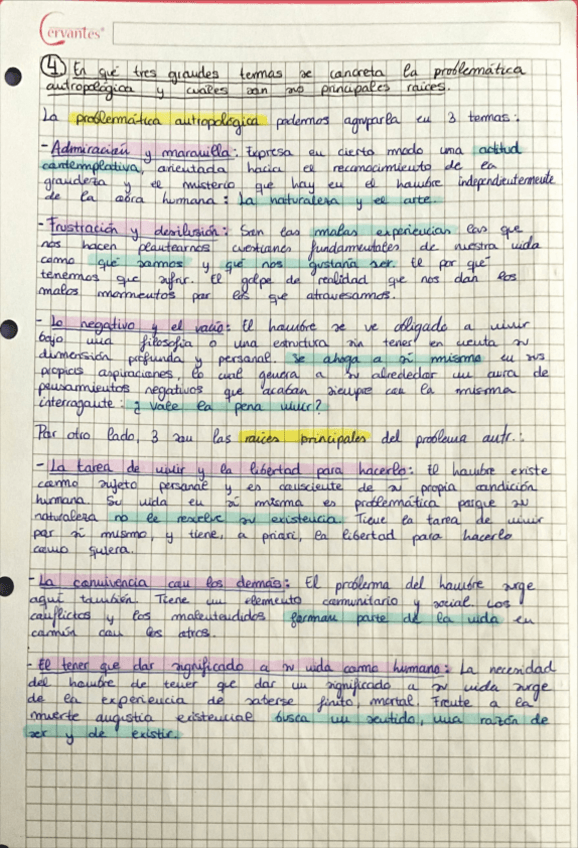 Cervantes®
4 En qué tres grandes temas se concreta la problemática
antropológica y cuáles son sus principales raíces.
La problemática antropológica podemos agruparla en 3 temas:
- Admiración y maravilla: Expresa en cierto modo una actitud
contemplativa, orientada hacia el reconocimiento de la
grandeza y el misterio que hay en el hombre independientemente
de la obra humana: La naturaleza y el arte.
- Frustración y desilusión: Son las malas experiencias las que
nos hacen plantearnos cuestiones fundamentales de nuestra vida
como qué somos y qué nos gustaría ser. El por qué
tenemos que sufrir. El golpe de realidad que nos dan los
malos momentos por los que atravesamos.
- Lo negativo y el vacío: El hombre se ve obligado a vivir
bajo una filosofía o una estructura sin tener en cuenta su
dimensión profunda y personal. Se ahoga a sí mismo en sus
propias aspiraciones, lo cual genera a su alrededor un aura de
pensamientos negativos que acaban siempre con la misma
interrogante: ¿vale la pena vivir?
Por otro lado, 3 son las raíces principales del problema antr.:
- La tarea de vivir y la libertad para hacerlo: El hombre existe
como sujeto personal y es consciente de su propia condición
humana. Su vida en sí misma es problemática porque su
naturaleza no le resuelve su existencia. Tiene la tarea de vivir
por sí mismo, y tiene, a priori, la libertad para hacerlo
como quiera.
- La convivencia con los demás: El problema del hombre surge
aquí también. Tiene un elemento comunitario y social. Los
conflictos y los malentendidos forman parte de la vida en
común con los otros.
- El tener que dar significado a su vida como humano: La necesidad
del hombre de tener que dar un significado a su vida surge
de la experiencia de saberse finito, mortal. Frente a la
muerte angustia existencial busca un sentido, una razón de
ser y de existir.